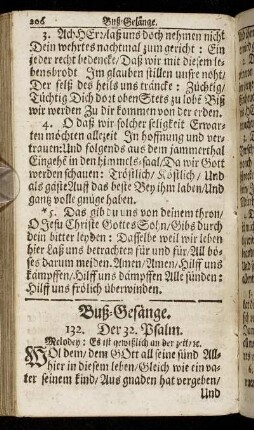 206 Buß-Gesänge.
3. Ach HErr/laß uns doch nehmen nicht
Dein wehrtes nachtmal zum gericht: Ein
jeder recht bedencke/Daß wir mit diesem le-
bensbrodt Im glauben stillen unsre noht/
Der felß des heils uns träncke: Züchtig/
Tüchtig Dich dort oben Stets zu lobē Biß
wir werden Zu dir kommen von der erden.
4. O daß wir solcher seligkeit Erwar-
ten möchten allezeit In hoffnung und ver-
trauen: Und folgends aus dem jammerthal
Eingehē in den himmels-saal/Da wir Gott
werden schauen: Tröstlich/Köstlich/Und
als gäste Auff das beste Bey ihm laben/Und
gantz volle gnüge haben.
*5. Das gib du uns von deinem thron/
O Jesu Christe Gottes Sohn/Gibs durch
dein bitter leyden: Dasselbe weil wir leben
hier Laß uns betrachten für und für/All bö-
ses darum meiden. Amen/Amen/Hilff uns
kämpffen/Hilff uns dämpffen Alle sünden:
Hilff uns frölich überwinden.
Buß-Gesänge.
132. Der 32. Psalm.
Melodey: Es ist gewißlich an der zeit/ꝛc.
WOl dem/dem GOtt all seine sünd All-
hier in diesem leben/Gleich wie ein va-
ter seinem kind/Aus gnaden hat vergeben/
Und